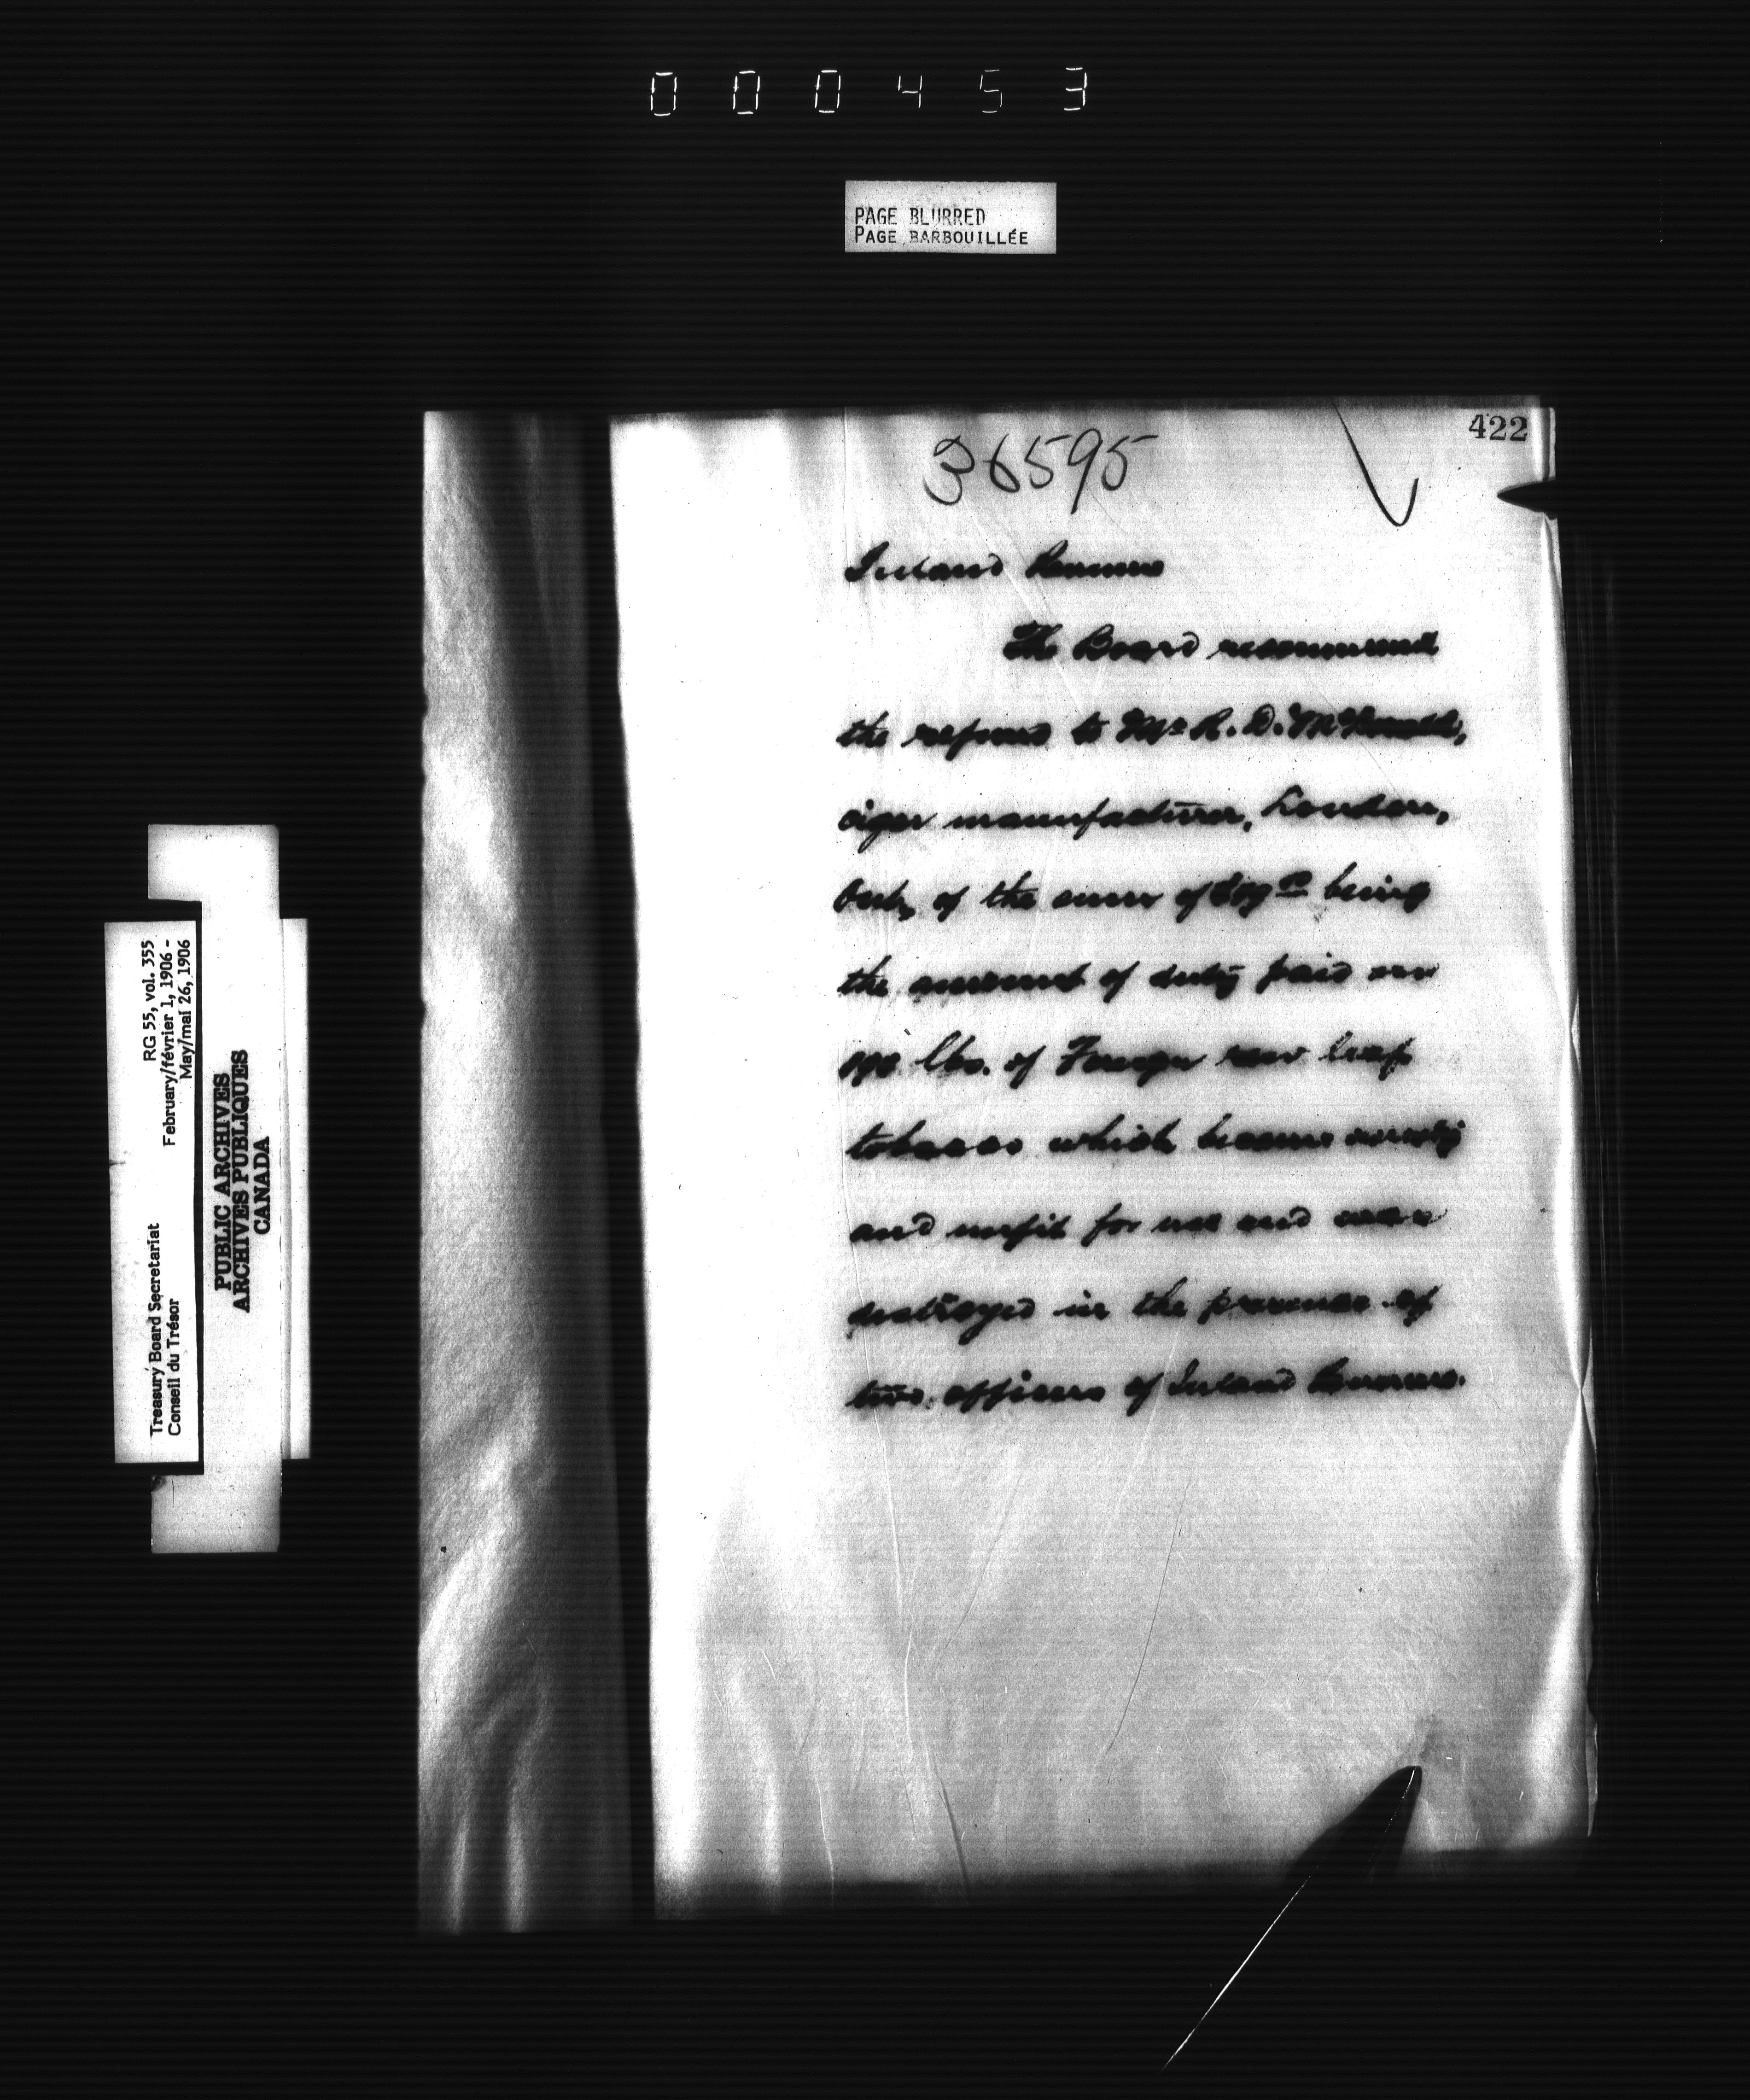 000453
PAGE BLURRED
PAGE BARBOUILLÉE
422
36595
Inland Revenue
The Board recommend
the refund to Mr R. D. McDonald,
cigar manufacturer, London,
Ont, of the sum of being
the amount of duty paid on
lbs. of Foreign raw leaf
tobacco which became
and unfit for use and was
destroyed in the presence of
two officers of Inland Revenue.
RG 55, vol. 355
February/février 1, 1906 -
May/mai 26, 1906
Treasury Board Secretariat
Conseil du Trésor
PUBLIC ARCHIVES
ARCHIVES PUBLIQUES
CANADA